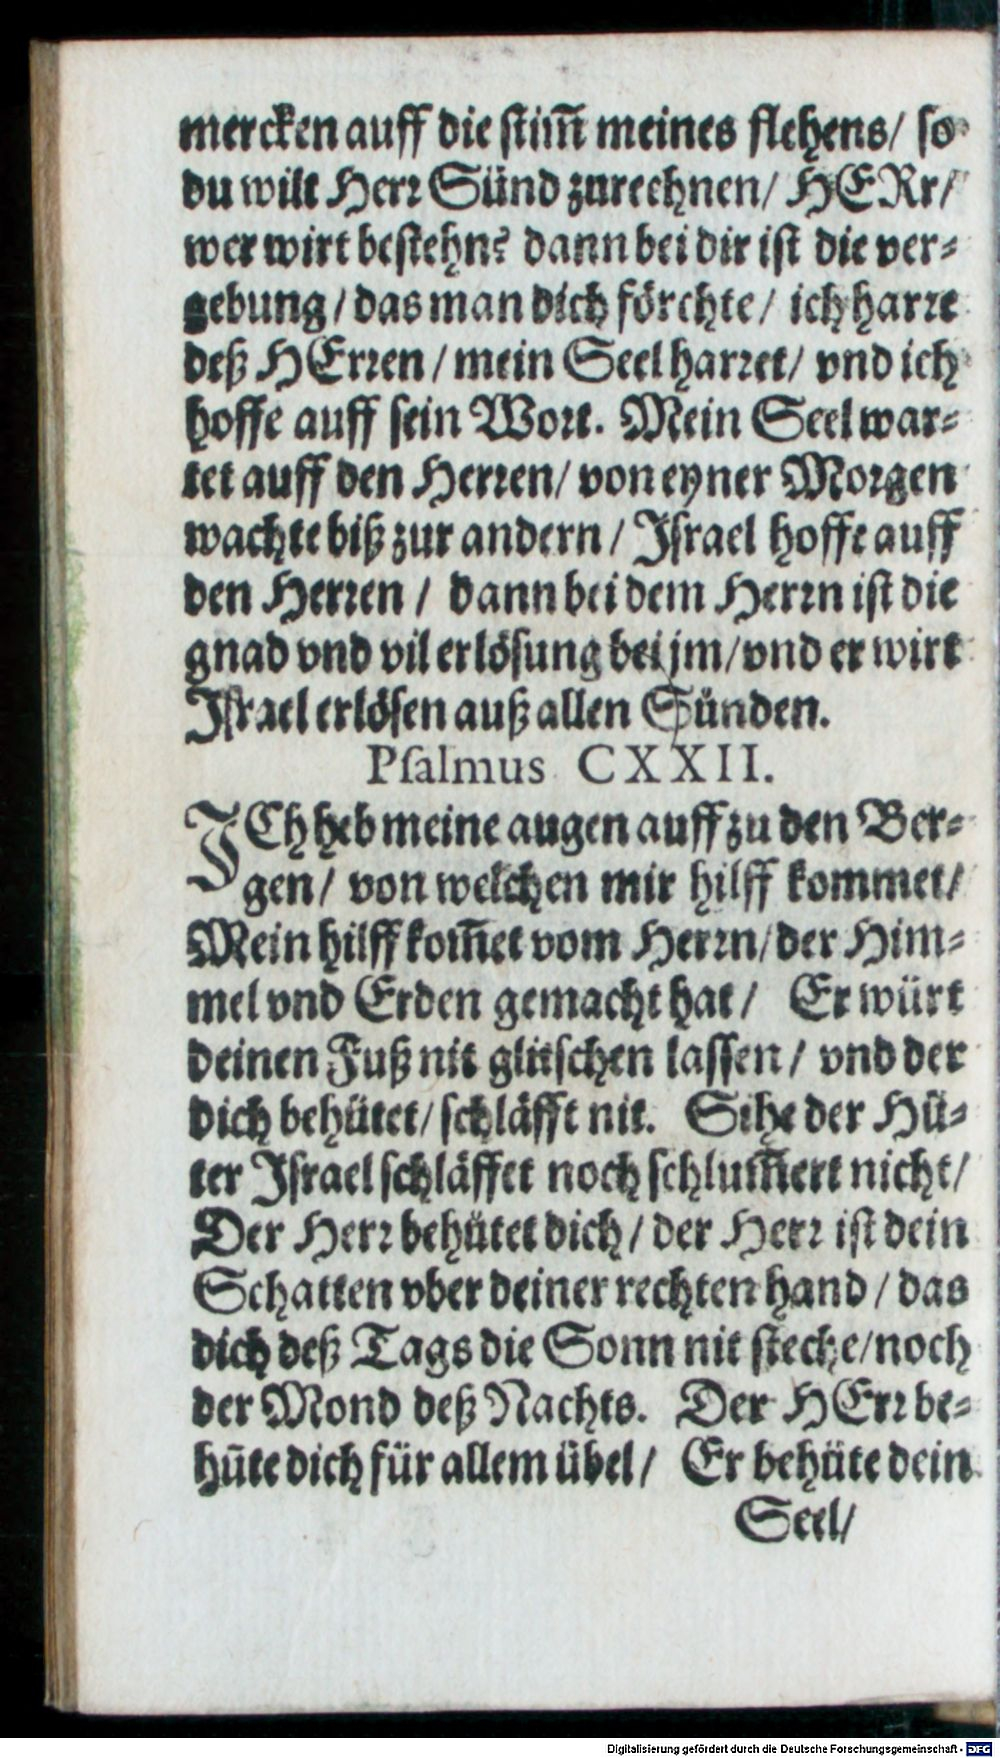 mercken auff die stim̃ meines flehens/ so
du wilt Herr Sünd zurechnen/ HERr/
wer wirt bestehn? dann bei dir ist die ver⸗
gebung/ das man dich förchte/ ich harre
deß HErren/ mein Seel harret/ vnd ich
hoffe auff sein Wort. Mein Seel war⸗
tet auff den Herren/ von eyner Morgen
wachte biß zur andern/ Israel hoffe auff
den Herren/ dann bei dem Herrn ist die
gnad vnd vil erlösung bei jm/ vnd er wirt
Israel erlösen auß allen Sünden.
Psalmus CXXII.
ICh heb meine augen auff zu den Ber⸗
gen/ von welchen mir hilff kommet/
Mein hilff kom̃et vom Herrn/ der Him⸗
mel vnd Erden gemacht hat/ Er würt
deinen Fuß nit glitschen lassen/ vnd der
dich behütet/ schläfft nit. Sihe der Hü⸗
ter Israel schläffet noch schlum̃ert nicht/
Der Herr behütet dich/ der Herr ist dein
Schatten vber deiner rechten hand/ das
dich deß Tags die Sonn nit steche/ noch
der Mond deß Nachts. Der HErr be⸗
hüte dich für allem übel/ Er behüte dein
Seel/
Digitalisierung gefördert durch die Deutsche Forschungsgemeinschaft - DFG